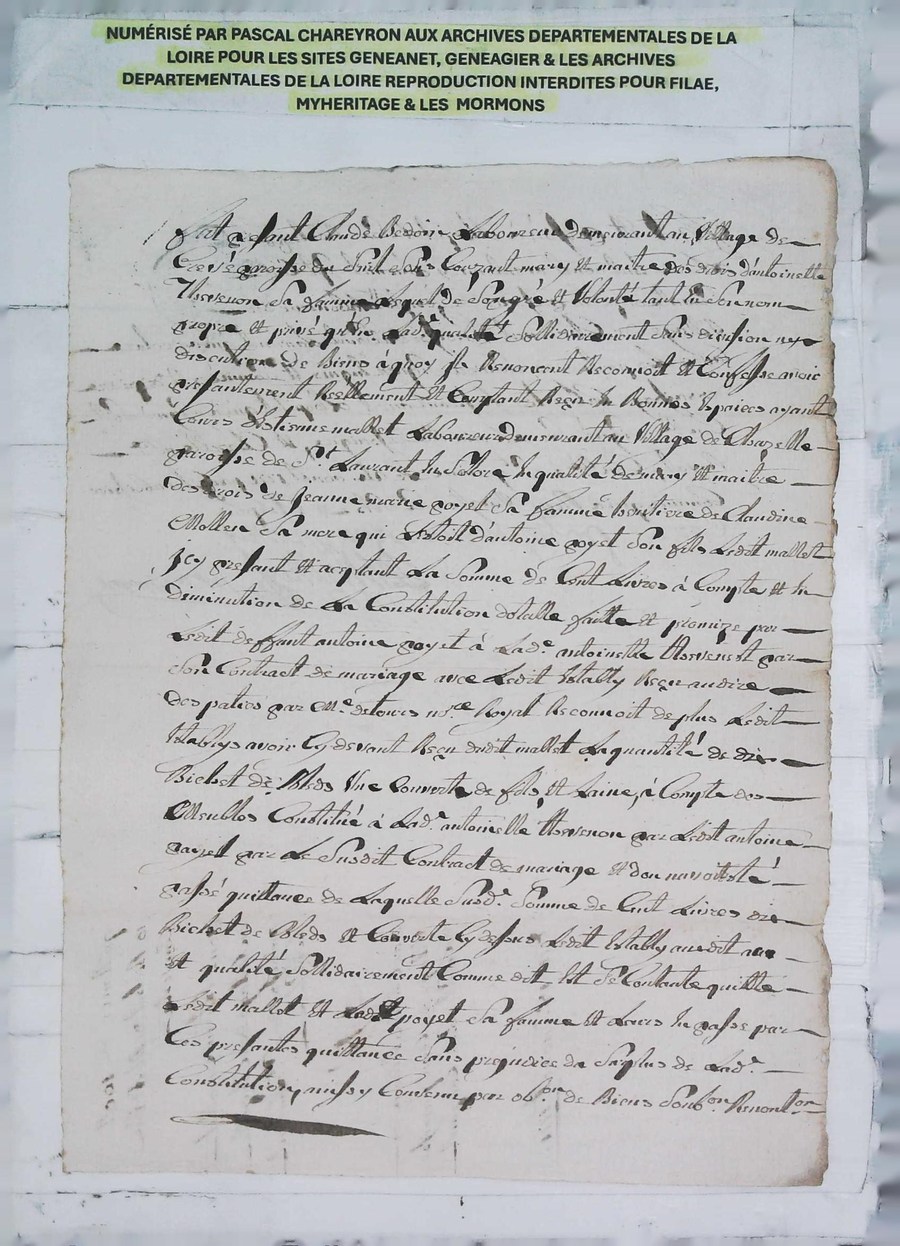 NUMÉRISÉ PAR PASCAL CHAREYRON AUX ARCHIVES DEPARTEMENTALES DE LA
LOIRE POUR LES SITES GENEANET, GENEAGIER & LES ARCHIVES
DEPARTEMENTALES DE LA LOIRE REPRODUCTION INTERDITES POUR FILAE,
MYHERITAGE & LES MORMONS
fut presant Claude Bedoin Laboureur demeurant au Village de
paroisse du mary et maitre des drois d'antoinette
Thevenon sa famme lequel de son gré et Volonté tant en son nom
propre et privé qu'en lad. qualité sollidairement sans division ny
discution de Biens à quoy il Renoncent Reconnoit et Confesse avoir
presantement Reellement et Comptant Reçu en Bonnes Espaices ayant
Cours d'Estienne mallet Laboureur demeurant au Village de Chazelle
paroisse de St. Laurant En qualité de mary et maitre
des Drois de Jeanne marie poyet sa famme heritiere de Claudine
Mollen sa mere qui Lestoit d'antoine poyet son fils Ledit mallet
jcy presant et aceptant La somme de Cent Livres à Compte et En
Diminution de La Constitution dotalle faitte et promize par
Ledit deffunt antoine poyet à Lad. antoinette Thevenon par
son Contract de mariage avec Ledit Estably Reçu
par Me. Royal Reconnoit de plus Ledit
Establys avoir Cy devant Reçu dudit mallet La quantité de dix
Bichet de Bleds Une Couverte de fils et Laine, à Compte des
Meubles Constitué à Lad. antoinette Thevenon par Ledit antoine
poyet par Le Susdit Contract de mariage et
passé quittance de Laquelle Susd. Somme de Cent Livres dix
Bichet de Bleds et Couverte Cy dessus Ledit Estably audit nom
et qualité sollidairement Comme dit Est se Contante quitte
Ledit mallet et poyet sa famme et Leurs En passe par
Ces presantes quittance sans prejudice du surplus de Lad.
Constitution, Convenu par obon. de Biens Renonton